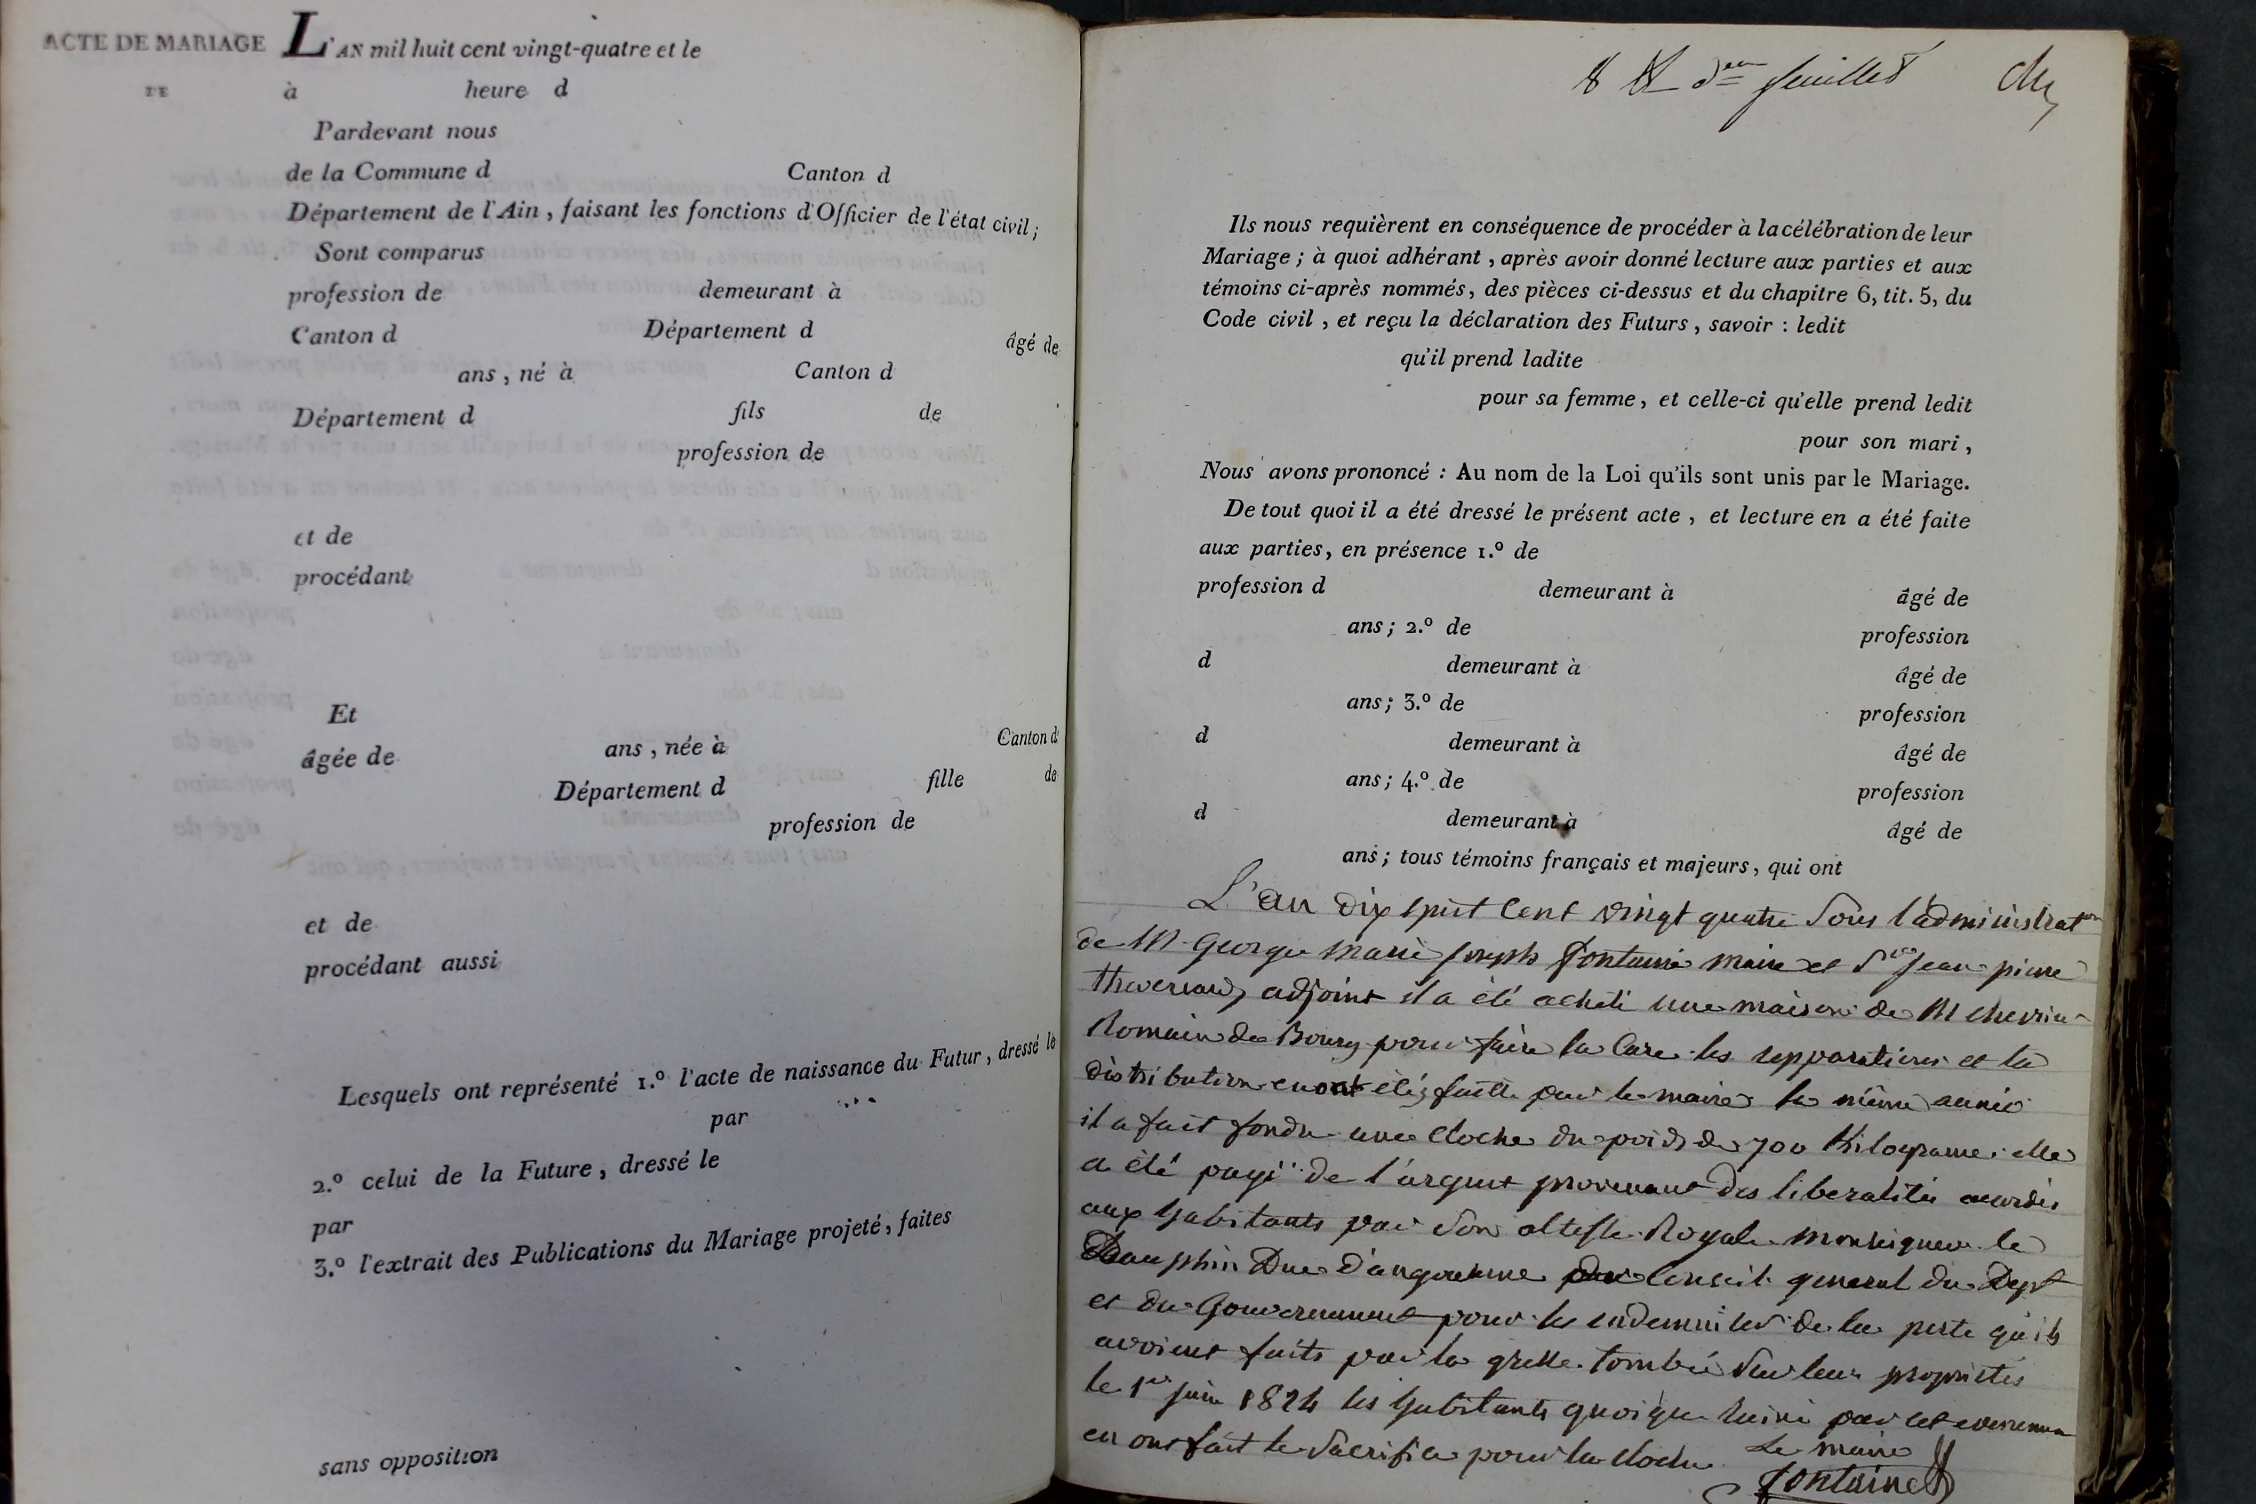 ACTE DE MARIAGE
DE
L'AN mil huit cent vingt-quatre et le
à heure d
Pardevant nous
de la Commune d Canton d
Département de l'Ain, faisant les fonctions d'Officier de l'état civil;
Sont comparus
profession de demeurant à
Canton d Département d âgé de
ans, né à Canton d
Département d fils de
profession de
et de
procédant
Et
âgée de ans, née à Canton d
Département d fille de
profession de
et de
procédant aussi
Lesquels ont représenté 1.º l'acte de naissance du Futur, dressé le
par
2.º celui de la Future, dressé le
par
3.º l'extrait des Publications du Mariage projeté, faites
sans opposition
8 & der feuillet
Ils nous requièrent en conséquence de procéder à la célébration de leur
Mariage; à quoi adhérant, après avoir donné lecture aux parties et aux
témoins ci-après nommés, des pièces ci-dessus et du chapitre 6, tit. 5, du
Code civil, et reçu la déclaration des Futurs, savoir : ledit
qu'il prend ladite
pour sa femme, et celle-ci qu'elle prend ledit
pour son mari,
Nous avons prononcé : Au nom de la Loi qu'ils sont unis par le Mariage.
De tout quoi il a été dressé le présent acte, et lecture en a été faite
aux parties, en présence 1.º de
profession d demeurant à âgé de
ans; 2.º de profession
d demeurant à âgé de
ans; 3.º de profession
d demeurant à âgé de
ans; 4.º de profession
d demeurant à âgé de
ans; tous témoins français et majeurs, qui ont
L'an dix huit Cent vingt quatre Sous l'administraton
de M. George Marie Joseph Fontaine maire et Sr Jean pierre
Thevenard, adjoint il a été acheté une maison de M chevrier
Romain de Bourg pour faire la Cure les repparations et la
distribution en ont étés faitte par le maire la même année
il a fait fondre une Cloche du poids de 700 Kilograme. elle
a été payé de l'argent provenant des liberalités accordés
aux habitants par Son altesse Royale monseigneur le
Dauphin Duc d'angouleme par Conseil general du Dept
et du Gouvernement pour les indemniser de la perte qu'ils
avoient faits par la grelle tombée Sur leurs proprietés
le 1er juin 1824 les habitants quoique ruiné par cet evenement
en ont fait le Sacrifice pour la cloche Le maire
Fontaine